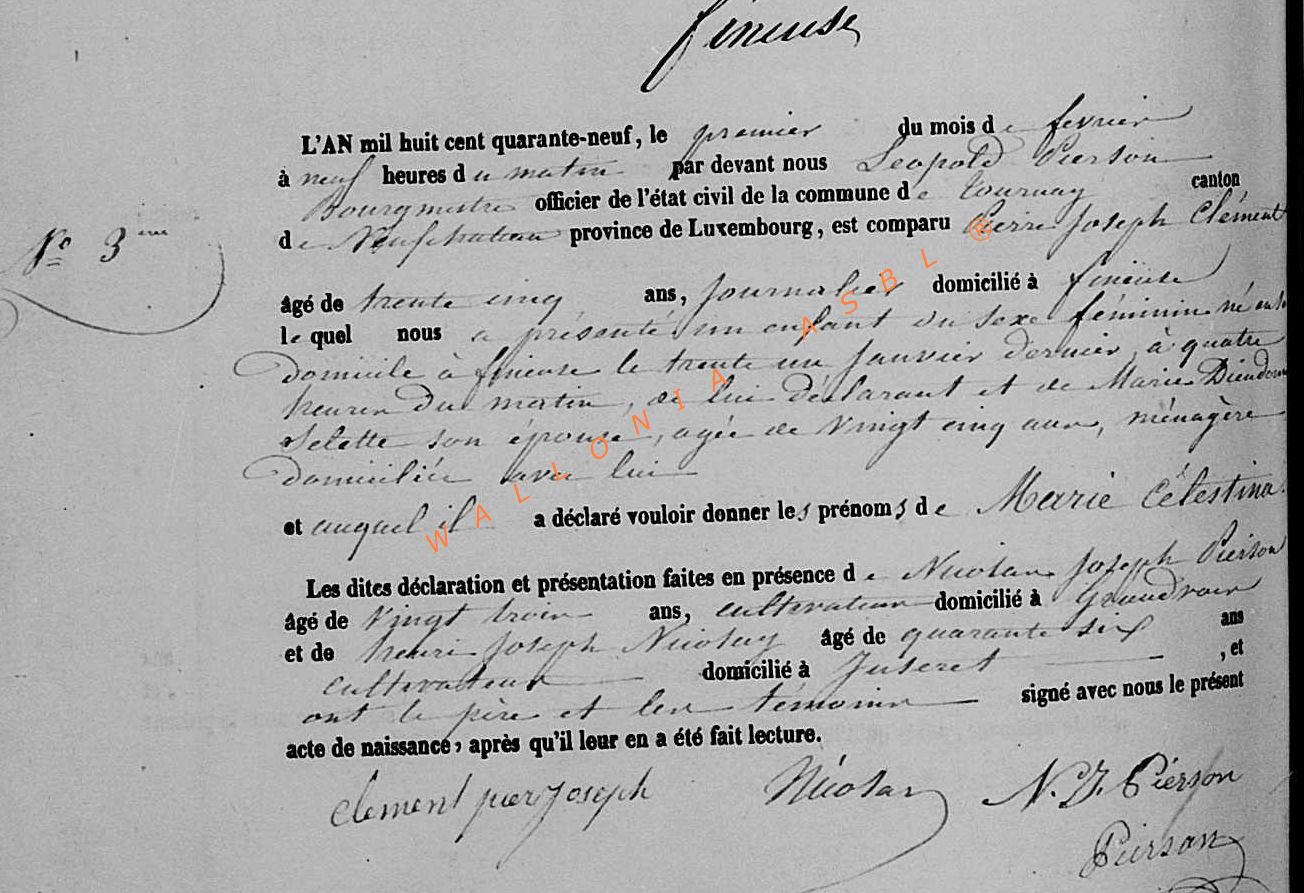 fineuse
L'AN mil huit cent quarante-neuf, le premier du mois de fevrier
à neuf heures du matin par devant nous Leopold Pierson
Bourgmestre officier de l'état civil de la commune de tournay canton
de Neufchateau province de Luxembourg, est comparu Pierre Joseph Clément
N° 3eme
âgé de trente cinq ans, journalier domicilié à fineuse
lequel nous a présenté un enfant du sexe féminin né en son
domicile à fineuse le trente un janvier dernier, à quatre
heures du matin, de lui déclarant et de Marie Dieudonnée
son épouse, agée de vingt cinq ans, ménagère
domiciliée avec lui
et auquel il a déclaré vouloir donner les prénoms de Marie Célestina.
Les dites déclaration et présentation faites en présence de Nicolas Joseph Pierson
âgé de vingt trois ans, cultivateur domicilié à Grandvoir
et de henri Joseph Nicolay âgé de quarante six ans
cultivateur domicilié à Juseret , et
ont le père et les témoins signé avec nous le présent
acte de naissance, après qu'il leur en a été fait lecture.
clement pier joseph Nicolas N. J. Pierson
Pierson
WALLONIA ASBL ®